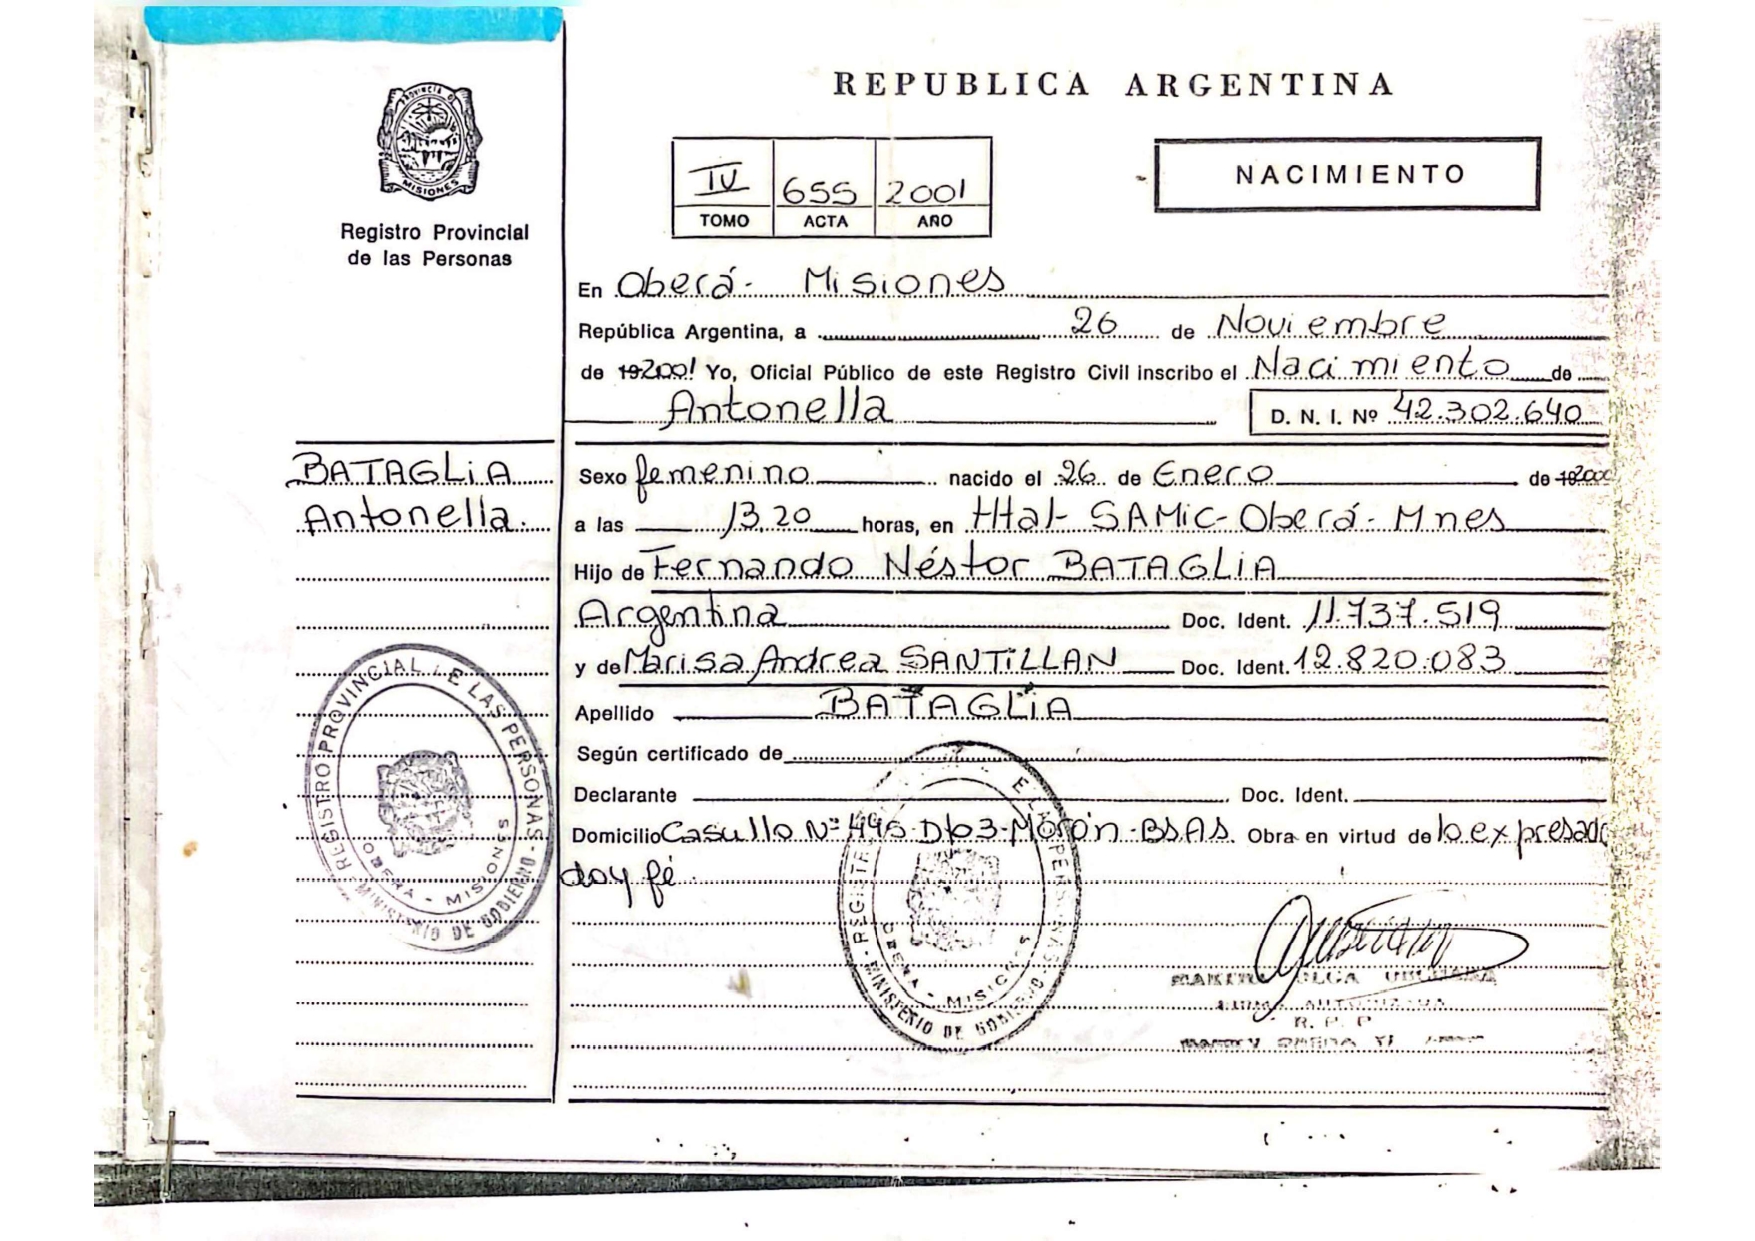 REPUBLICA ARGENTINA
PROVINCIA D
MISIONES
Registro Provincial
de las Personas
IV 655 2001
TOMO ACTA AÑO
NACIMIENTO
En Oberá- Misiones
República Argentina, a 26 de Noviembre
de 19 2001 Yo, Oficial Público de este Registro Civil inscribo el Nacimiento de
Antonella D. N. I. Nº 42.302.640
BATAGLIA
Antonella.
Sexo femenino nacido el 26 de Enero de 19 2000
a las 13,20 horas, en Htal- SAMic-Oberá-Mnes
Hijo de Fernando Néstor BATAGLIA
Argentina Doc. Ident. 11.737.519
y de Marisa Andrea SANTILLAN Doc. Ident. 12.820.083
Apellido BATAGLIA
Según certificado de
Declarante Doc. Ident.
Domicilio Casullo Nº Dto3-Morón-BSAS. Obra en virtud de lo expresado
doy fé.
REGISTRO PROVINCIAL E LAS PERSONAS
MINISTERIO DE GOBIERNO
MISIONES
MINISTERIO DE GOBIERNO
R. P. P